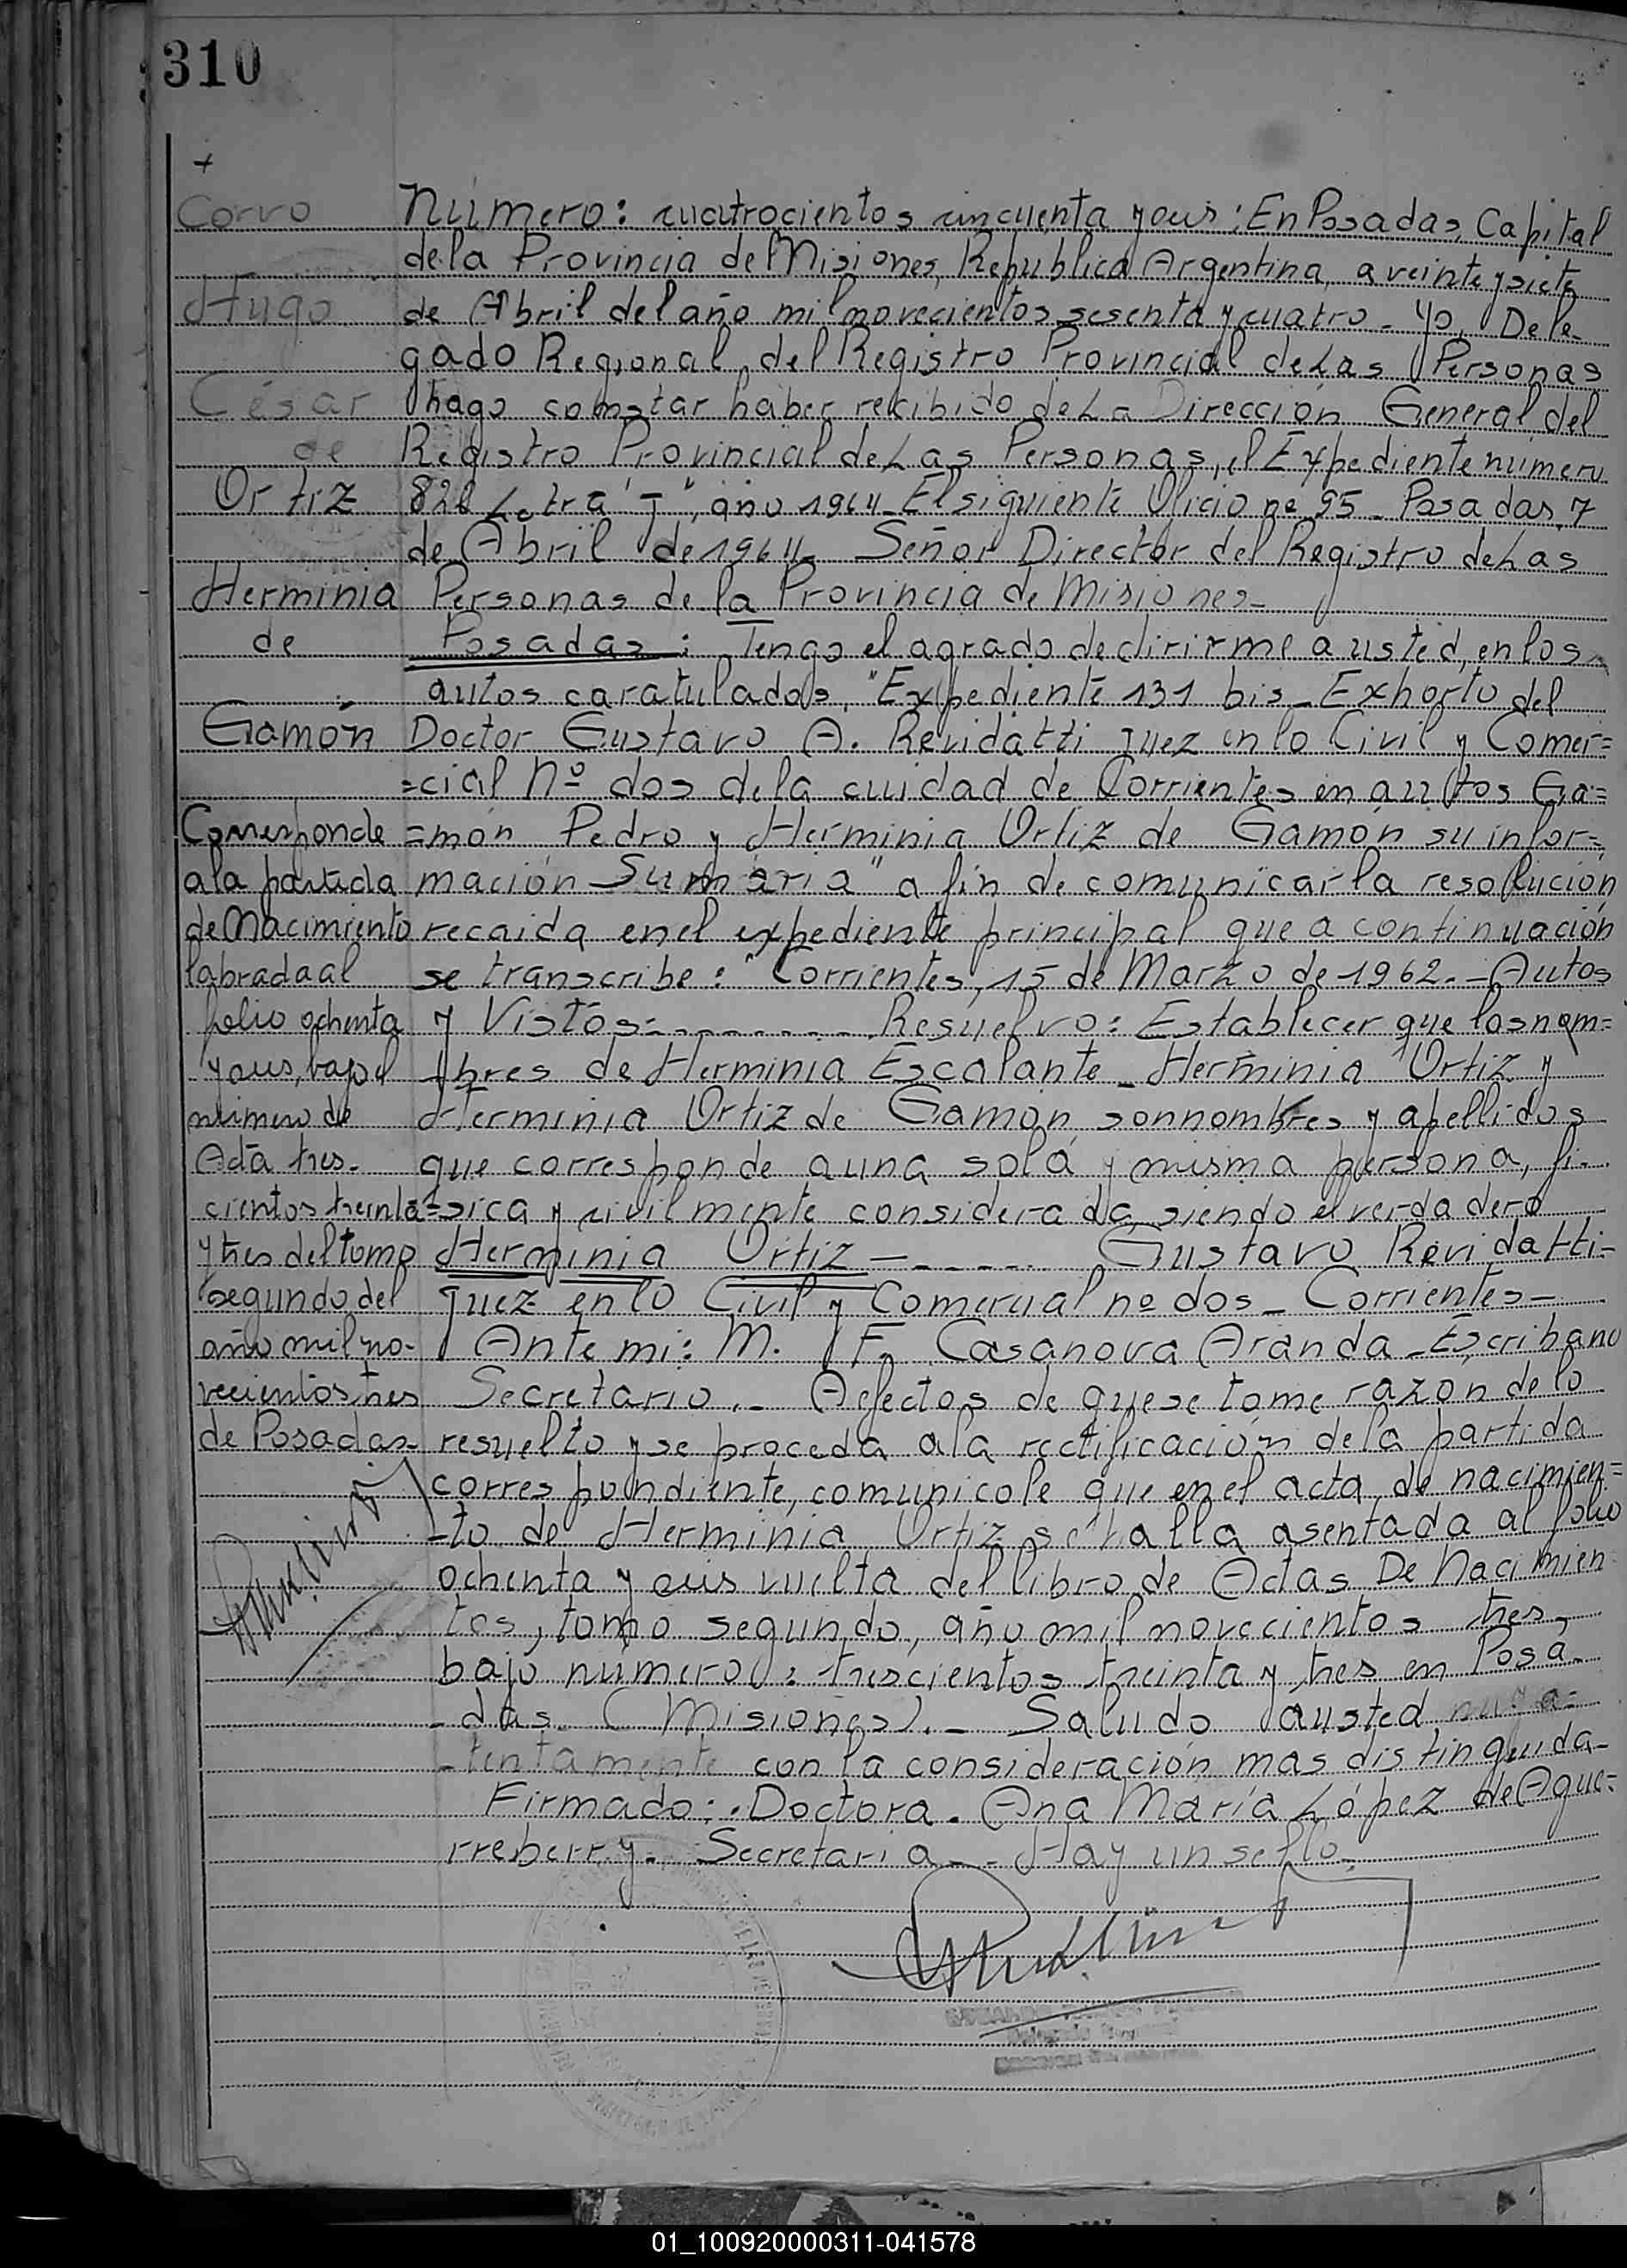 310
+
Corvo
Hugo
César
de
Ortiz
Herminia
de
Gamón
Corresponde
a la partida
de Nacimiento
labrada al
folio ochenta
y seis, bajo el
número de
Acta tres-
cientos treinta
y tres del tomo
segundo del
año mil no-
vecientos tres
de Posadas-
Número: cuatrocientos cincuenta y seis: En Posadas, Capital
de la Provincia de Misiones, Republica Argentina, a veinte y siete
de Abril del año mil novecientos sesenta y cuatro - Yo, Dele-
gado Regional del Registro Provincial de Las Personas
hago comstar haber recibido de La Dirección General del
Registro Provincial de Las Personas, el Expediente número
828 Letra "J", año 1964 - El siguiente Oficio no 95 - Posadas, 7
de Abril de 1964 - Señor Director del Registro de Las
Personas de la Provincia de Misiones-
Posadas: Tengo el agrado de dirirme a usted, en los
autos caratulados, "Expediente 131 bis - Exhorto del
Doctor Gustavo A. Revidatti Juez en lo Civil y Comer=
=cial Nº dos de la cuidad de Corrientes en autos Ga=
=món Pedro y Herminia Ortiz de Gamón su infor=
mación Sumaria" a fin de comunicar la resolución
recaida en el expediente principal que a continuación
se transcribe: "Corrientes, 15 de Marzo de 1962. - Autos
y Vistos: - - - - - - - - Resuelvo: Establecer que los nom=
bres de Herminia Escalante - Herminia Ortiz y
Herminia Ortiz de Gamón, son nombres y apellidos
que corresponde a una sola y misma persona, fi-
=sica y civilmente considerada, siendo el verdadero
Herminia Ortiz - - - - - - Gustavo Revidatti-
Juez en lo Civil y Comercial no dos - Corrientes -
Ante mi: M. F. Casanova Aranda - Escribano
Secretario. - A efectos de que se tome razon de lo
resuelto y se proceda a la rectificación de la partida
correspondiente, comunicole que en el acta de nacimien=
-to de Herminia Ortiz se halla asentada al folio
ochenta y seis vuelta del libro de Actas De Nacimien
tos, tomo segundo, año mil novecientos tres,
bajo número: trescientos treinta y tres en Posa-
-das (Misiones). - Saludo a usted, muy a=
-tentamente con la consideración mas distinguida-
Firmado: Doctora. Ana María López de Ague=
rreberry - Secretaria - - Hay un sello-
01_100920000311-041578